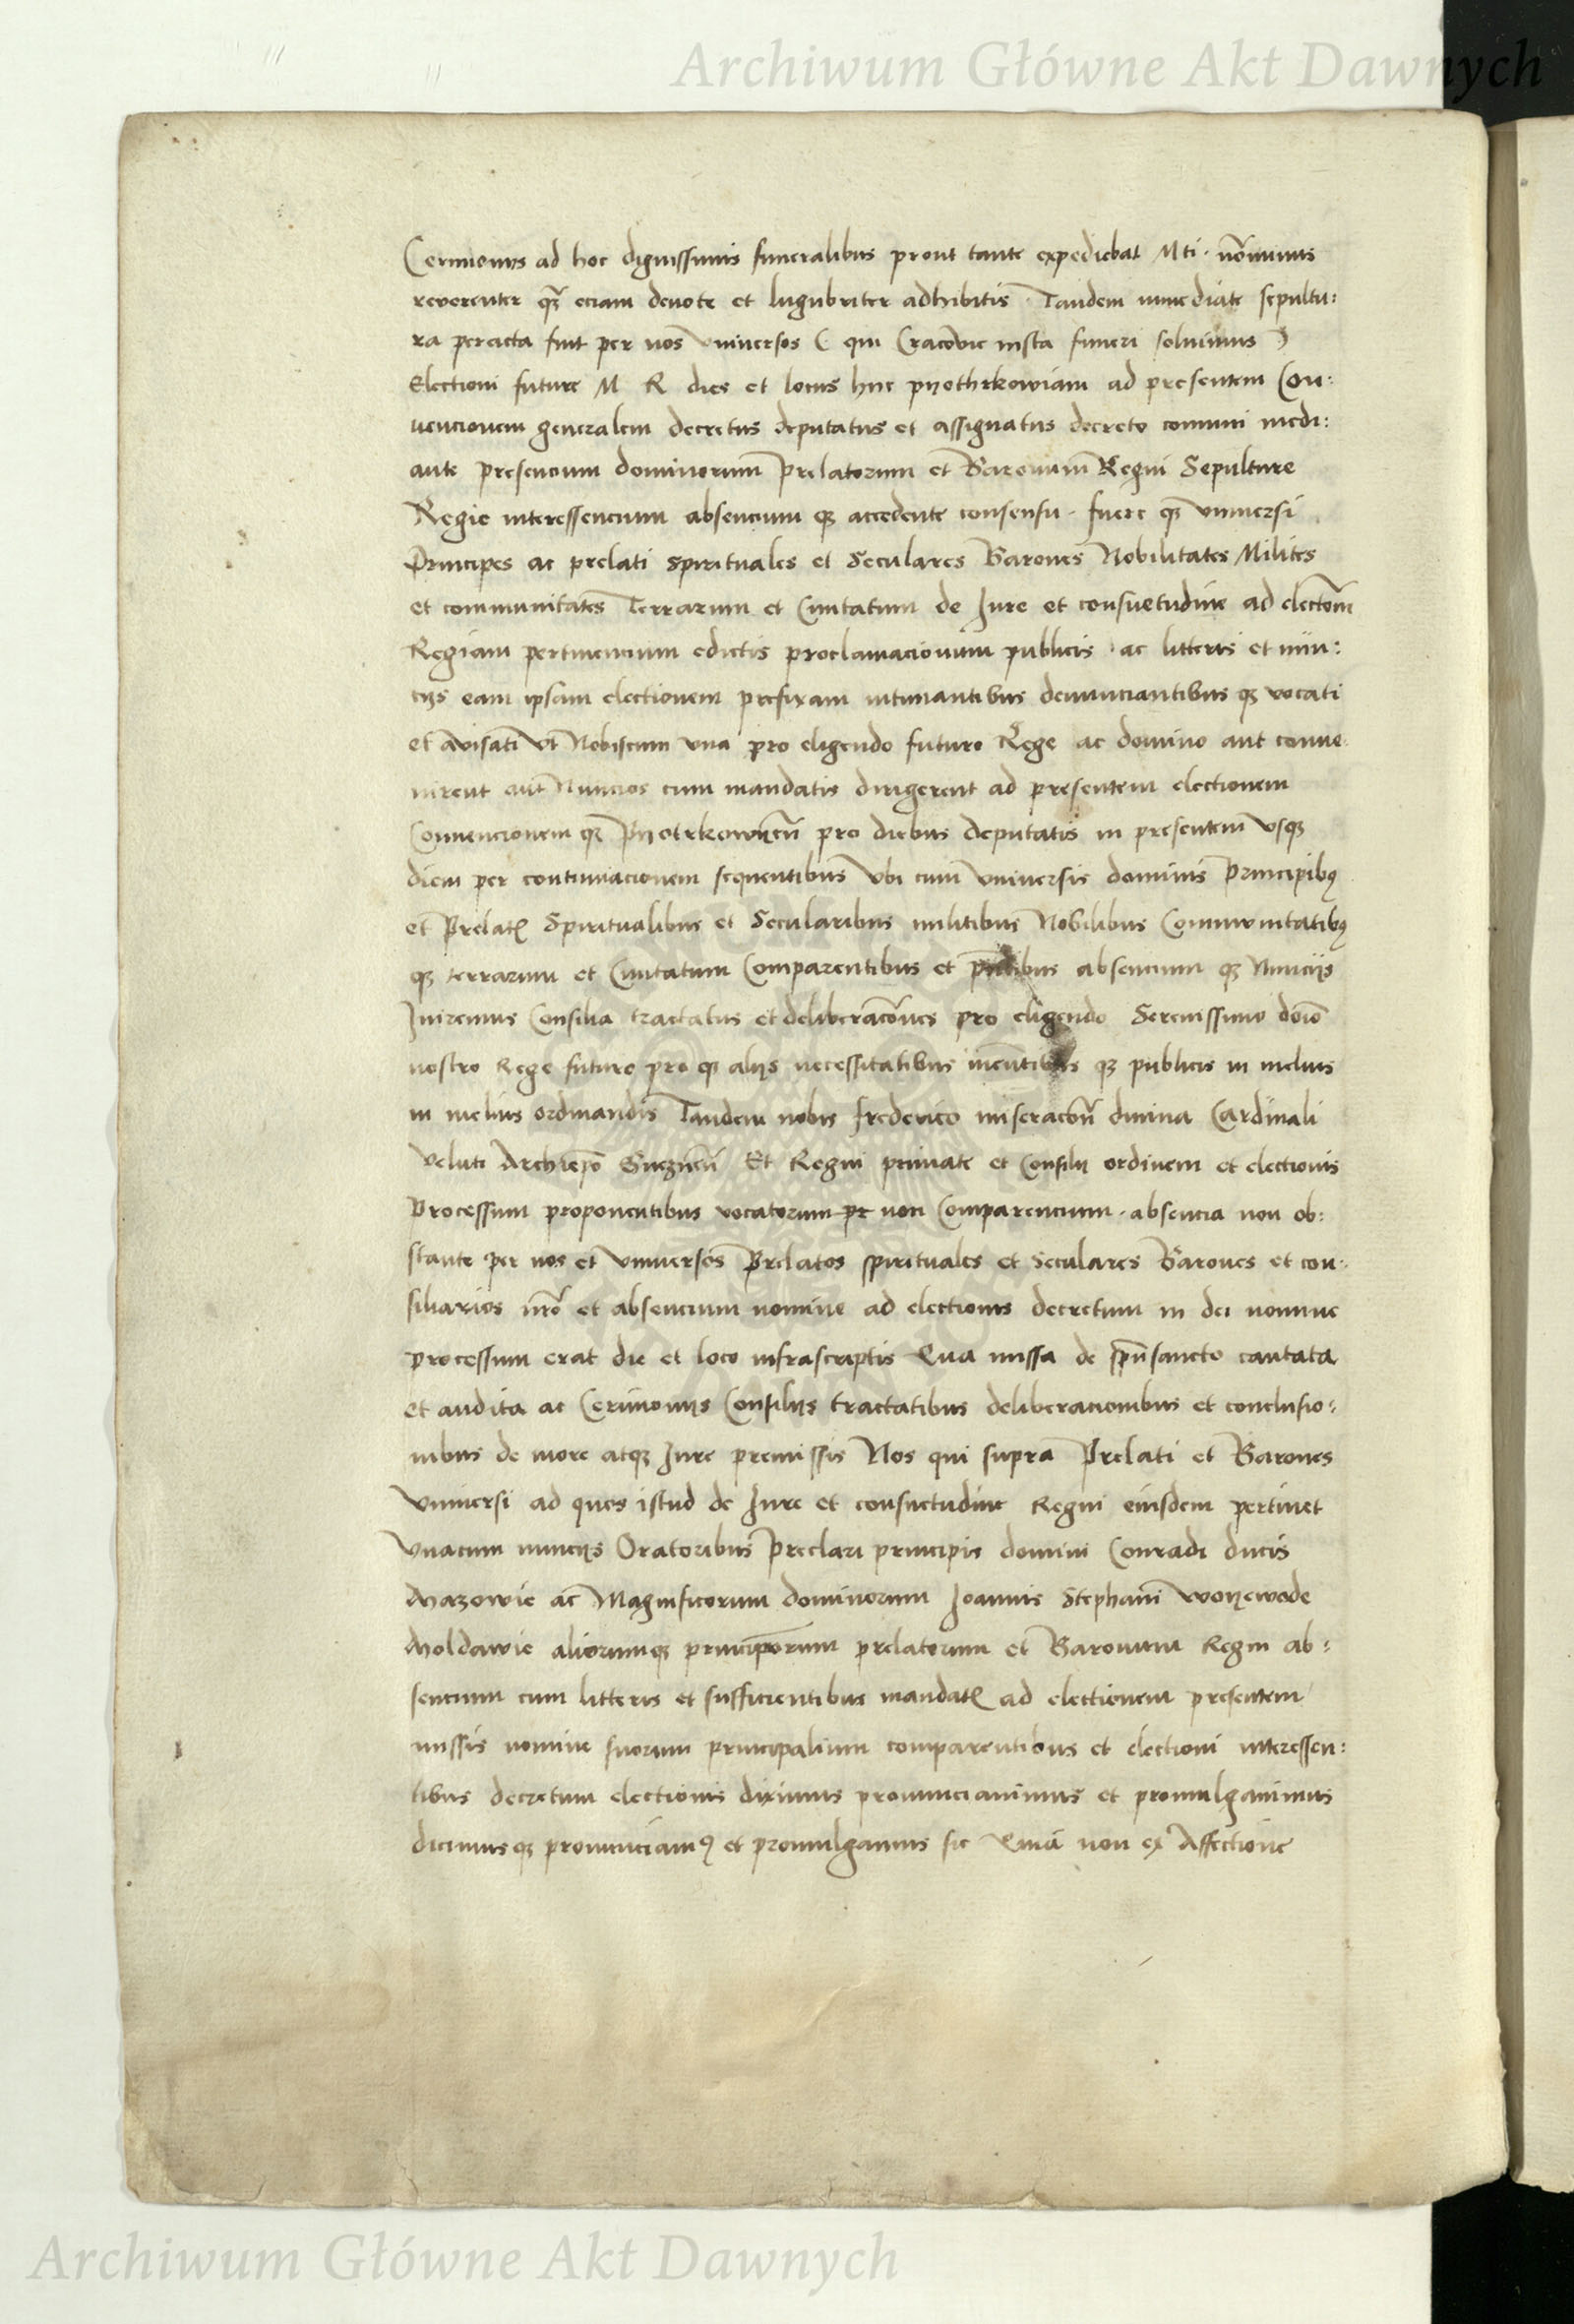 Archiwum Główne Akt Dawnych
Cerimoniis ad hoc dignissimis funeralibus prout tante expediebat Mti. non minus
reverenter qȝ eciam devote et lugubriter adhibitis Tandem immediate sepultu:
ra peracta fuit per nos universos ( qui Cracovie iusta funeri solvimus )
Electioni future M R dies et locus huc pyothrkowiam ad presentem Con:
vencionem generalem decretus deputatus et assignatus decreto comuni medi:
ante presencium dominorum Prelatorum et Baronum Regni Sepulture
Regie interessencium absencium qȝ accedente consensu. fuere qȝ Universi
Principes ac prelati Spirituales et Seculares Barones Nobilitates Milites
et communitates Terrarum et Civitatum de Jure et consuetudine ad electom̄
Regiam pertinencium edictis proclamacionum publicis ac litteris et nun:
cys eam ipsam electionem prefixam intimantibus denunciantibus qȝ vocati
et avisati Ut Nobiscum una pro eligendo futuro Rege ac domino aut conve
nirent aut Nuncios cum mandatis dirigerent ad presentem electionem
Convencionem qȝ Pyotrkowien̄ pro diebus deputatis in presentem usqȝ
diem per continuacionem sequentibus Ubi cum universis dominis Principibꝰ
et Prelatꝭ Spiritualibus et Secularibus militibus Nobilibus Communitatibꝰ
qȝ terrarum et Civitatum Comparentibus et absencium qȝ Nuncijs
Inivimus Consilia tractatus et deliberac̄ones pro eligendo Serenissimo dōio
nostro Rege futuro pro qȝ alijs necessitatibus qȝ publicis in melius
in melius ordinandis Tandem nobis frederico miserac̄on̄ divina Cardinali
veluti Archiepō Gneznen̄ Et Regni primate et Consilij ordinem et electionis
Processum proponentibus vocatorum pr non Comparencium. absencia non ob:
stante per nos et universos Prelatos spirituales et Seculares Barones et con:
siliarios nr̄o et absencium nomine ad electionis decretum in dei nomine
processum erat die et loco infrascriptis Qua missa de spū sancto cantata
et audita ac Cerimonijs Consilijs tractatibus deliberacionibus et conclusio:
nibus de more atqȝ Jure premissis Nos qui supra Prelati et Barones
Universi ad quos istud de Jure et consuetudine Regni eiusdem pertinet
Unacum nuncijs Oratoribus Preclari principis domini Conradi ducis
Mazowie ac Magnificorum dominorum Joannis Stephani woyewode
Moldawie aliorumqȝ principorum prelatorum et Baronum Regni ab:
sencium cum litteris et sufficientibus mandatꝭ ad electionem presentem
missis nomine suorum principalium comparentibus et electioni interessen:
tibus decretum electionis diximus pronunciavimus et promulgavimus
dicimusqȝ pronunciamꝰ et promulgamus sic Quia non ex Affectione
Archiwum Główne Akt Dawnych